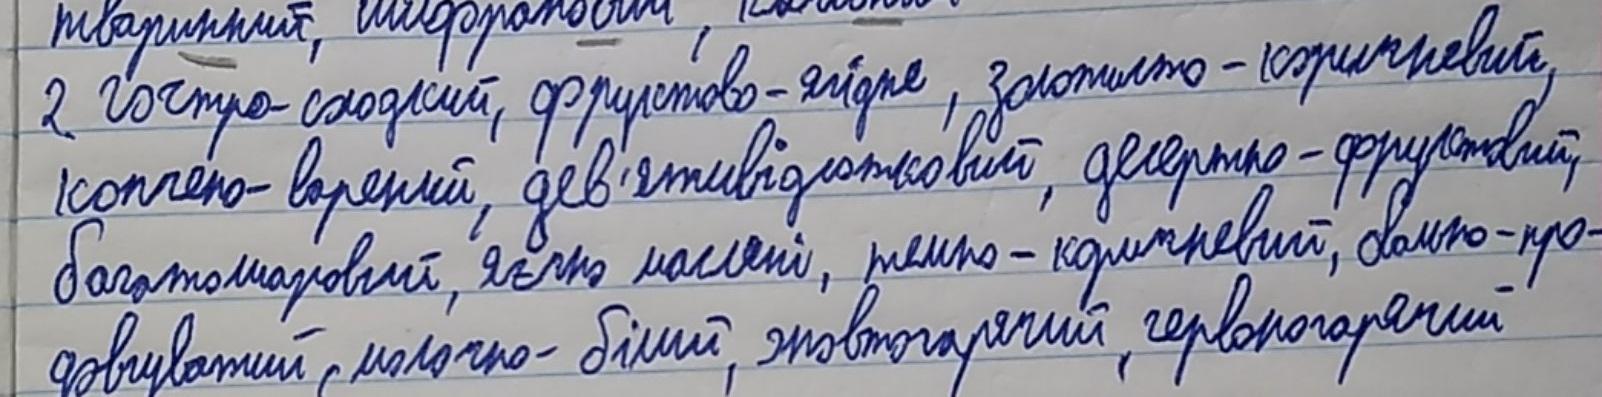 тваринний, шифрановий,
2. Гостро-солодкий, фруктово-ягідне, золотисто-коричневий,
копчено-варений, дев'ятивідсотковий, десертно-фруктовий,
багатошаровий, яєчно масляні, темно-коричневий, овально-про-
довгуватий, молочно-білий, жовтогарячий, червоногарячий